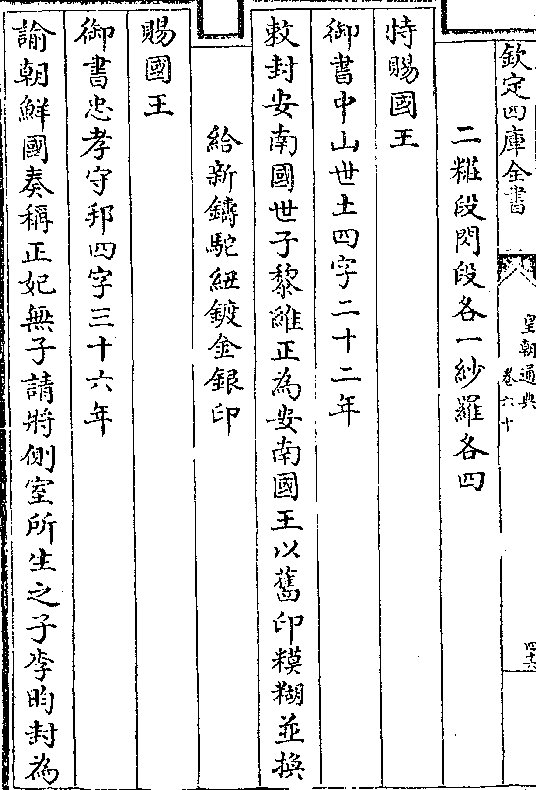 欽定四庫全書
皇朝通典
卷六十
四六
二糚段閃段各一紗羅各四
特賜國王
御書中山世土四字二十二年
敕封安南國世子黎維正為安南國王以舊印糢糊並換
給新鑄駝紐鍍金銀印
賜國王
御書忠孝守邦四字三十六年
諭朝鮮國奏稱正妃無子請將側室所生之子李昀封為